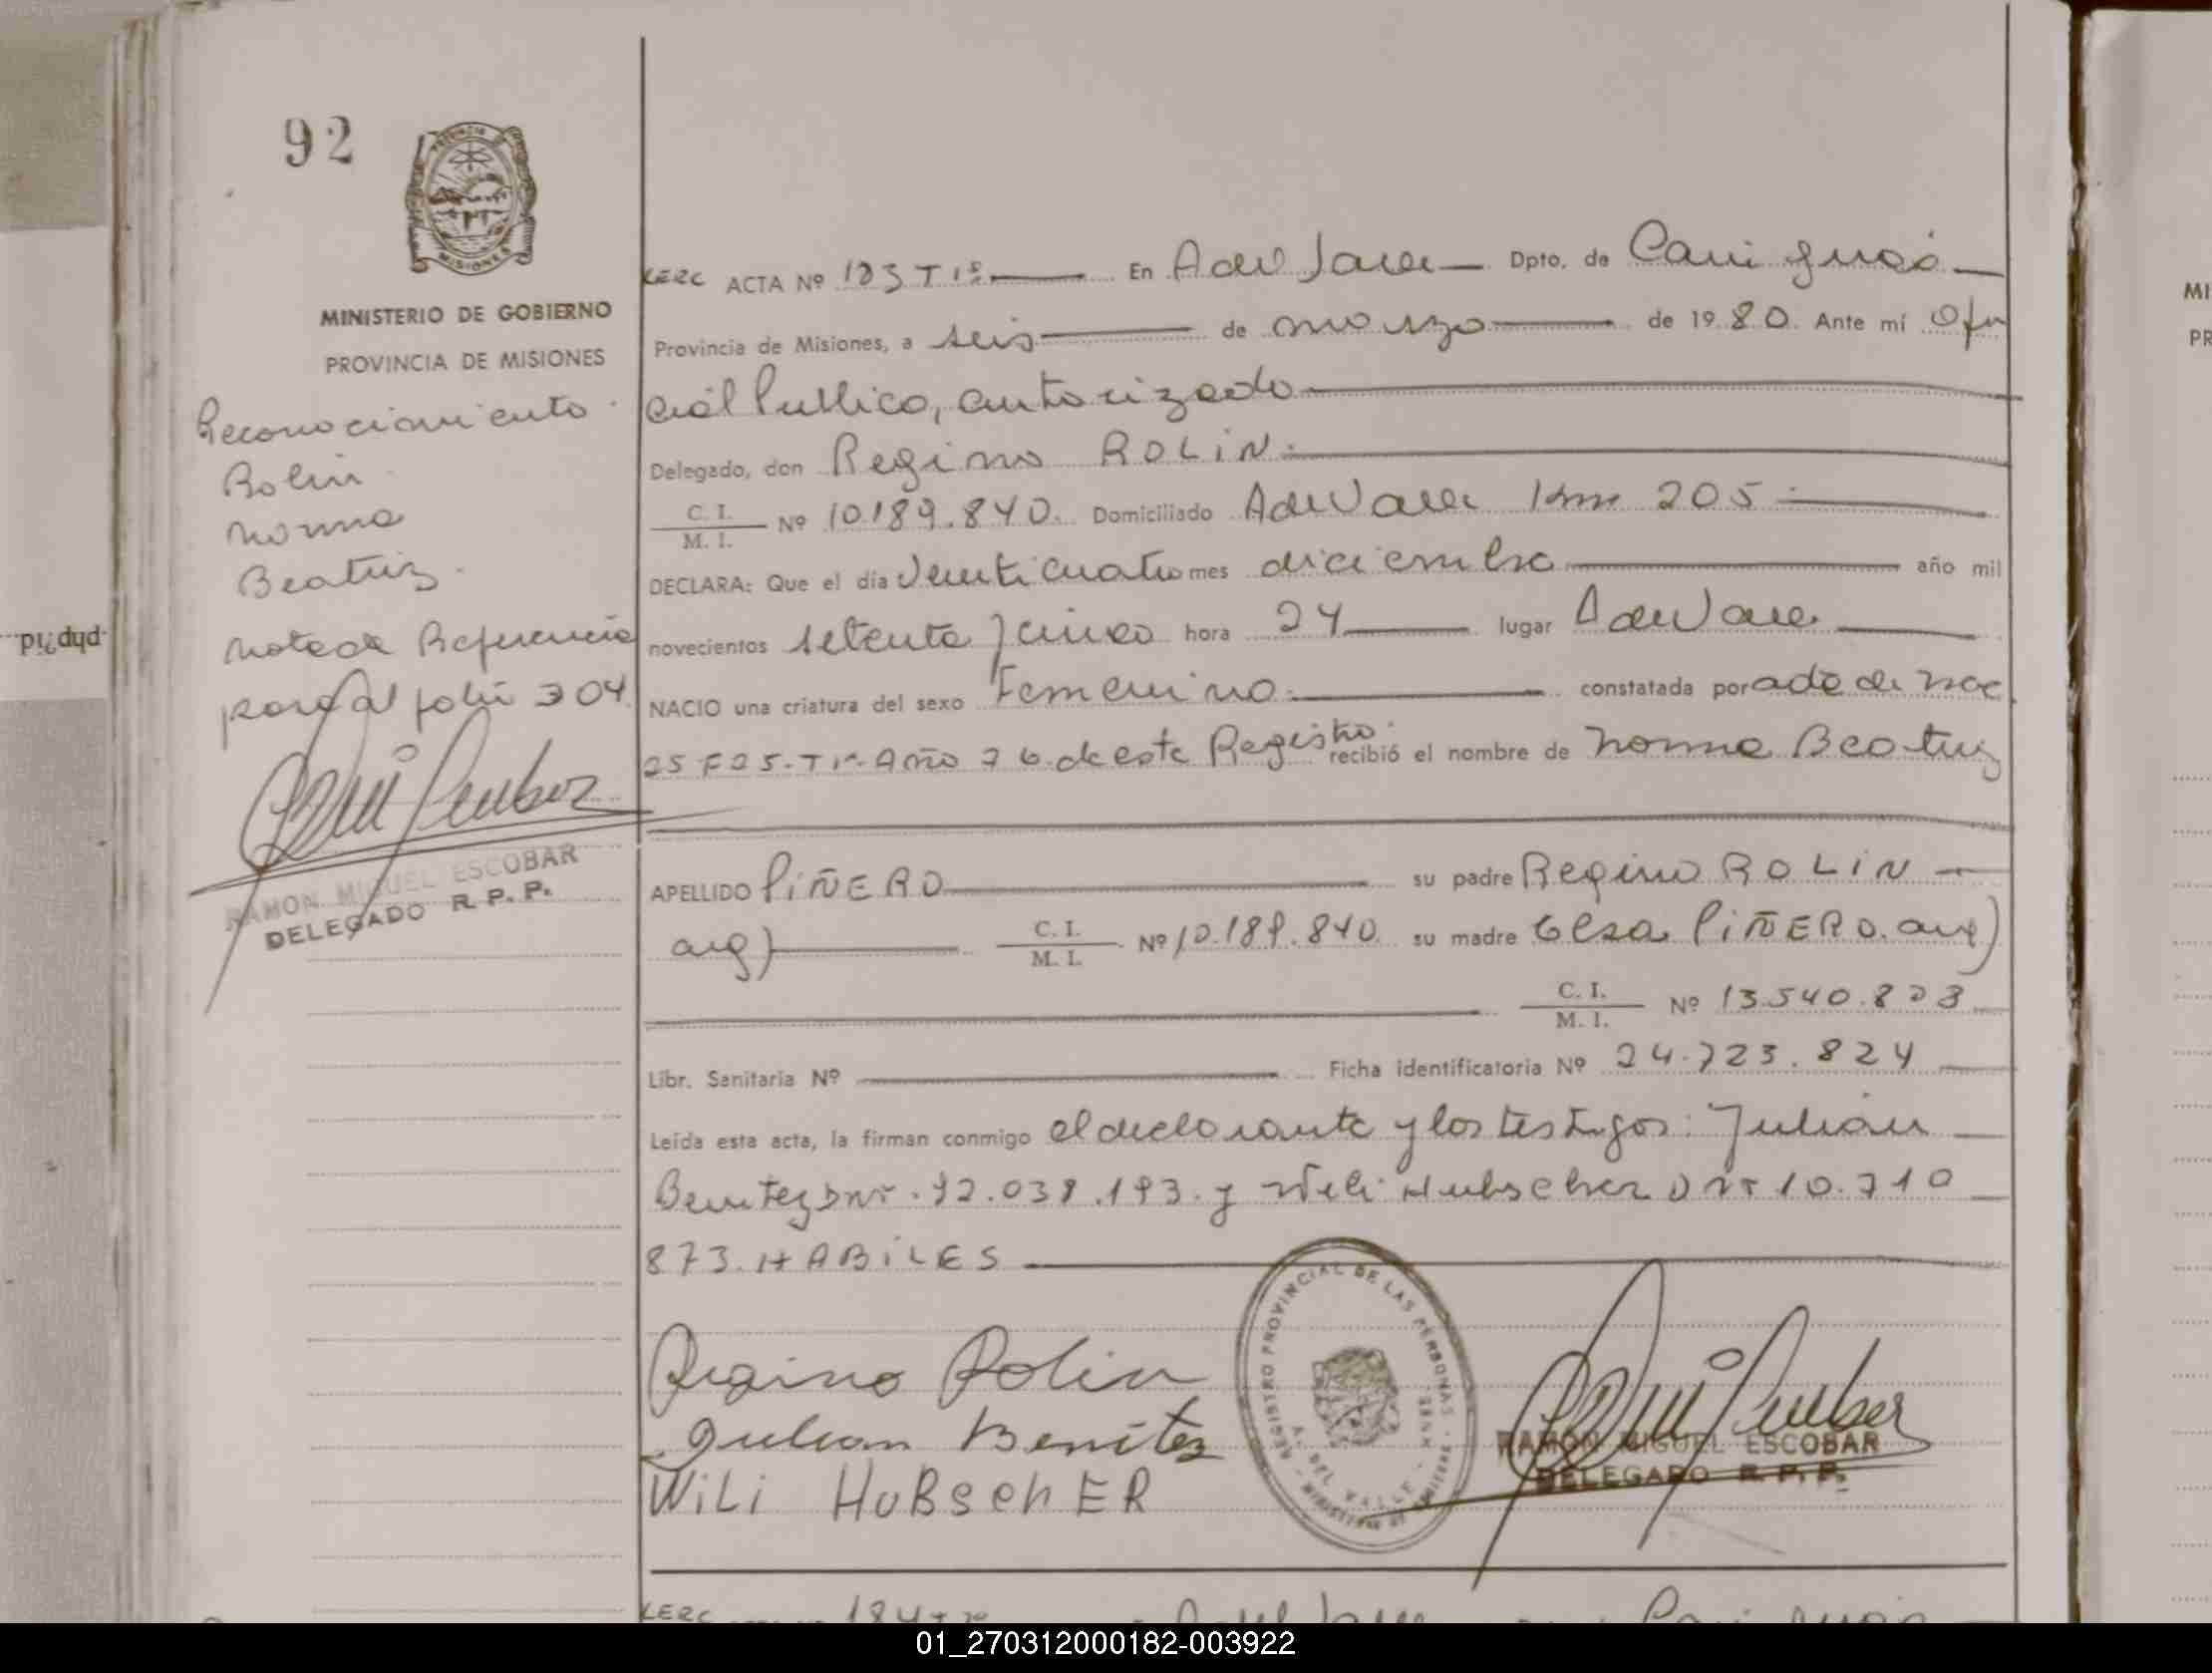 92
PROVINCIA DE
MISIONES
MINISTERIO DE GOBIERNO
PROVINCIA DE MISIONES
Reconocimiento
Rolin
Norma
Beatriz
Nota de Referencia
para al folio 304
RAMON MIGUEL ESCOBAR
DELEGADO R. P. P.
ACTA Nº 183 Tº 1º En A del Valle Dpto. de Cainguás
Provincia de Misiones, a seis de marzo de 1980. Ante mí Ofi
cial Publico, autorizado
Delegado, don Regino ROLiN.
C. I. / M. I. Nº 10.189.840. Domiciliado A del Valle Km 205
DECLARA: Que el día veinticuatro mes diciembre año mil
novecientos setenta y cinco hora 24 lugar A del Valle
NACIO una criatura del sexo Femenino. constatada por acta de nac
25 F 25. Tº 1º Año 76. de este Registro. recibió el nombre de Norma Beatriz
APELLIDO PiÑERO su padre Regino ROLiN
arg) C. I. / M. I. Nº 10.189.840. su madre Elsa PiÑERO. arg)
C. I. / M. I. Nº 13.540.873
Libr. Sanitaria Nº Ficha identificatoria Nº 24.723.824
Leída esta acta, la firman conmigo el declarante y los testigos: Julián
Benitez DNI. 92.038.193. y Wili Hubscher DNI 10.710
873. HABiLES
Regino Rolin
Julian Benítez
WiLi HuBscHER
REGISTRO PROVINCIAL DE LAS PERSONAS
A. DEL VALLE
RAMON MIGUEL ESCOBAR
DELEGADO R. P. P.
184
01_270312000182-003922